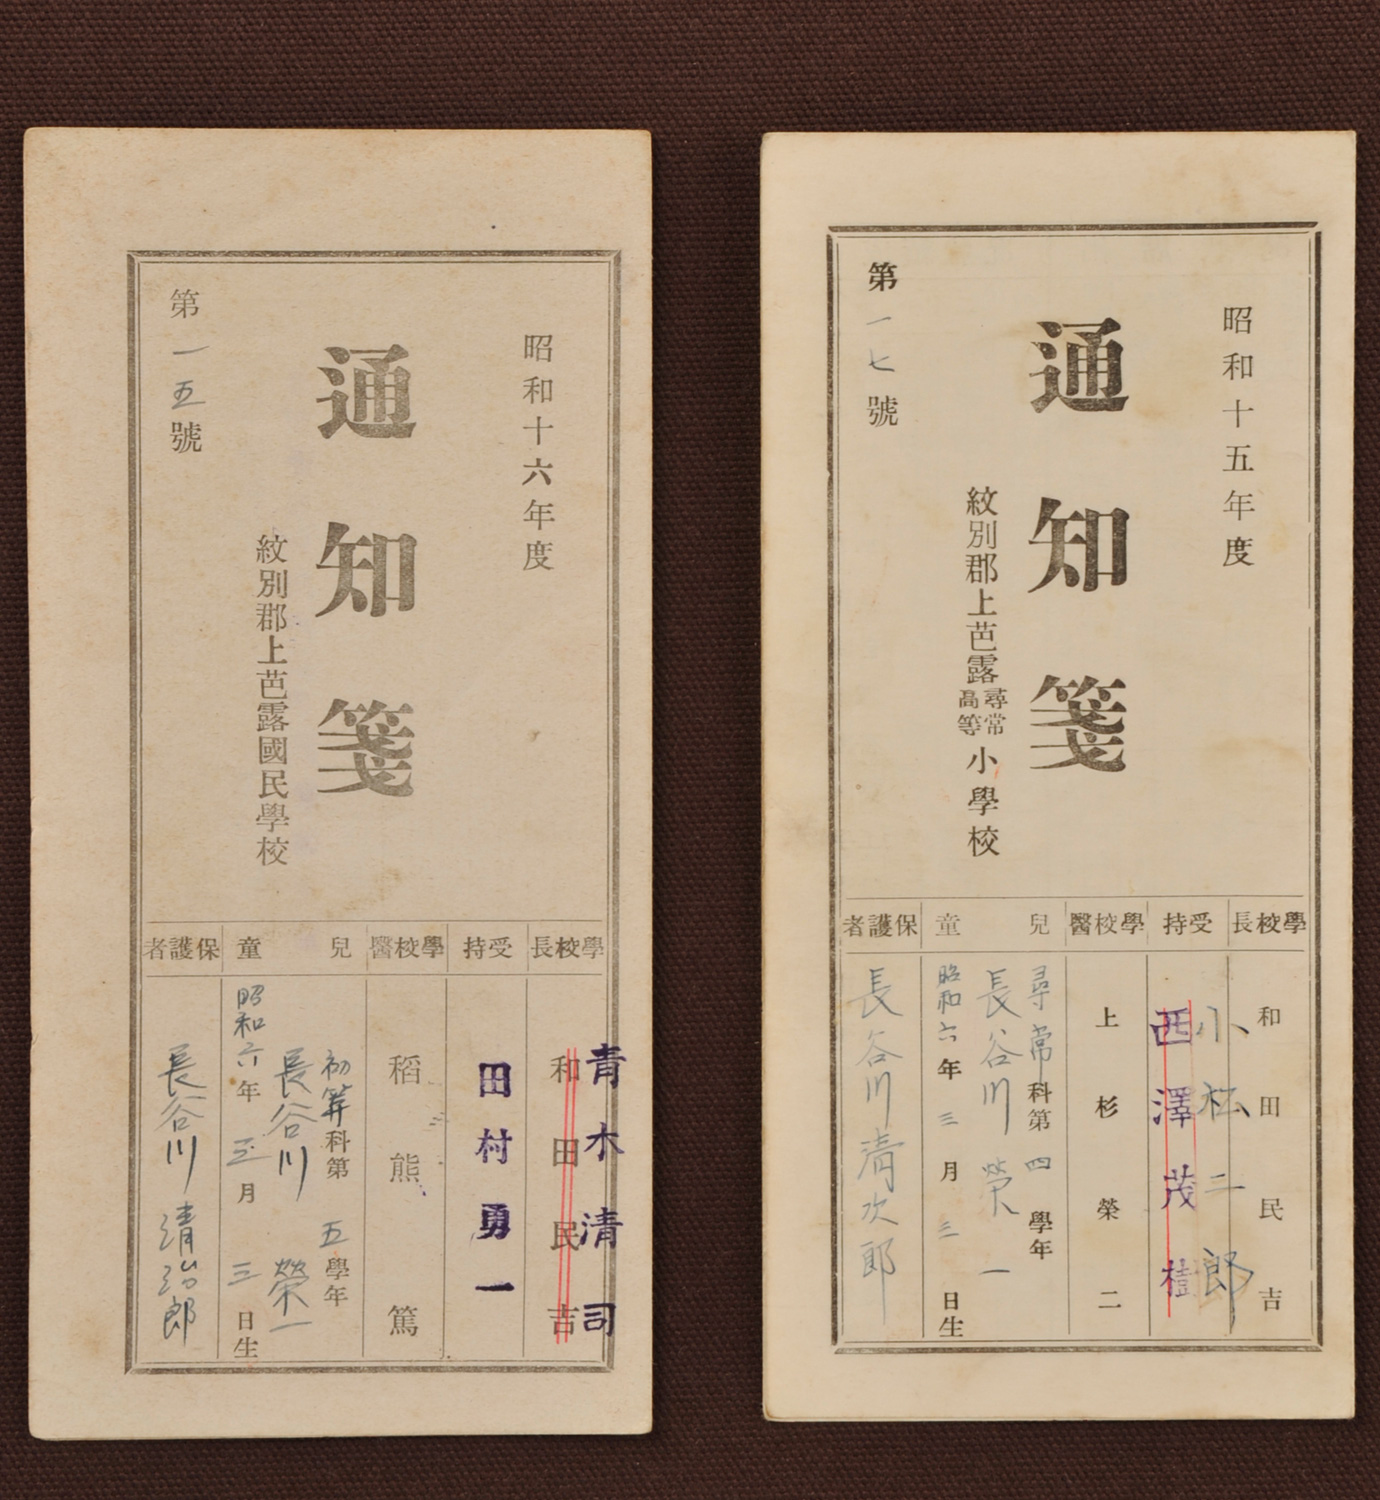 昭和十六年度
通知箋
紋別郡上芭露國民學校
第一五號
學校長
和田民吉
青木清司
受持
田村勇一
學校醫
稻熊篤
兒童
初等科第五學年
長谷川榮一
昭和六年三月三日生
保護者
長谷川清治郎
昭和十五年度
通知箋
紋別郡上芭露尋常高等小學校
第一七號
學校長
和田民吉
受持
小松二郎
西澤茂樹
學校醫
上杉榮二
兒童
尋常科第四學年
長谷川榮一
昭和六年三月三日生
保護者
長谷川清次郎